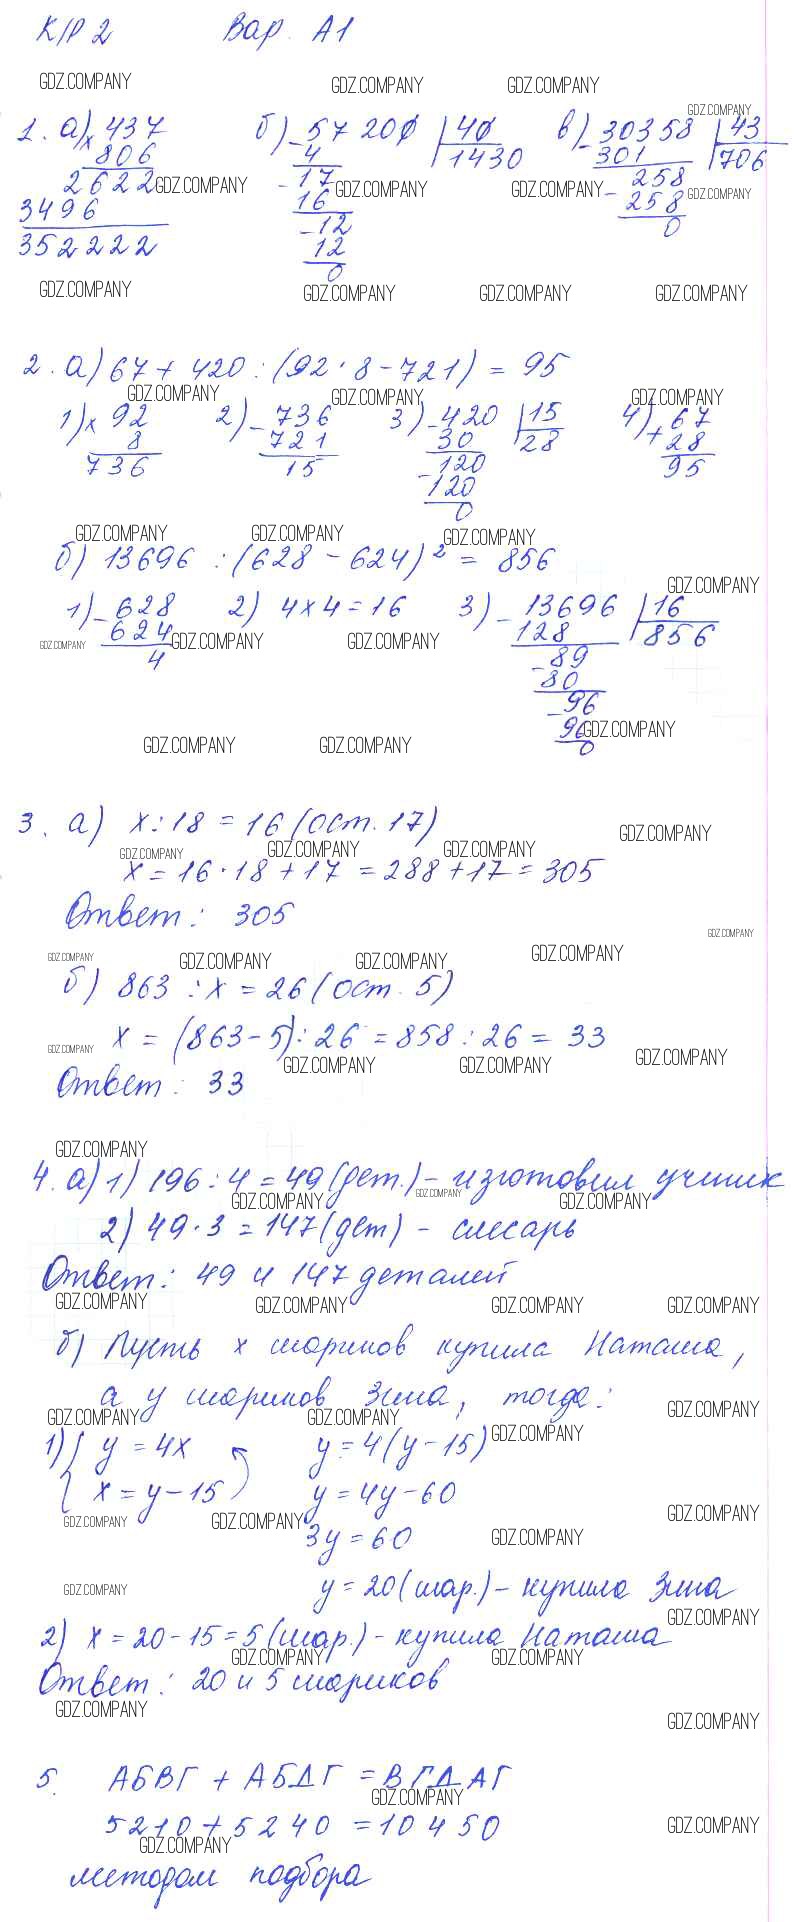 К/Р 2 Вар. А1
GDZ.COMPANY GDZ.COMPANY GDZ.COMPANY
GDZ.COMPANY
1. а) × 437 б) - 57200 | 40 в) - 30358 | 43
806 4 1430 301 706
2622 - 17 258
GDZ.COMPANY GDZ.COMPANY GDZ.COMPANY GDZ.COMPANY
3496 16 - 258
352222 - 12 0
12
0
GDZ.COMPANY GDZ.COMPANY GDZ.COMPANY GDZ.COMPANY
2. а) 67 + 420 : (92 · 8 - 721) = 95
GDZ.COMPANY GDZ.COMPANY GDZ.COMPANY
1) × 92 2) - 736 3) - 420 | 15 4) + 67
8 721 30 28 28
736 15 120 95
- 120
0
GDZ.COMPANY GDZ.COMPANY GDZ.COMPANY
б) 13696 : (628 - 624)² = 856
GDZ.COMPANY
1) - 628 2) 4 × 4 = 16 3) - 13696 | 16
624 128 856
GDZ.COMPANY GDZ.COMPANY GDZ.COMPANY
4 - 89
80
- 96
96 GDZ.COMPANY
0
GDZ.COMPANY GDZ.COMPANY
3. а) x : 18 = 16 (ост. 17)
GDZ.COMPANY
GDZ.COMPANY GDZ.COMPANY GDZ.COMPANY
x = 16 · 18 + 17 = 288 + 17 = 305
Ответ: 305
GDZ.COMPANY
GDZ.COMPANY GDZ.COMPANY GDZ.COMPANY GDZ.COMPANY
б) 863 : x = 26 (ост. 5)
x = (863 - 5) : 26 = 858 : 26 = 33
GDZ.COMPANY GDZ.COMPANY GDZ.COMPANY GDZ.COMPANY
Ответ: 33
GDZ.COMPANY
4. а) 1) 196 : 4 = 49 (дет.) - изготовил ученик
GDZ.COMPANY GDZ.COMPANY GDZ.COMPANY
2) 49 · 3 = 147 (дет) - слесарь
Ответ: 49 и 147 деталей
GDZ.COMPANY GDZ.COMPANY GDZ.COMPANY GDZ.COMPANY
б) Пусть x шариков купила Наташа,
а y шариков Зина, тогда:
GDZ.COMPANY GDZ.COMPANY GDZ.COMPANY GDZ.COMPANY
1) { y = 4x y = 4(y - 15)
x = y - 15 y = 4y - 60
GDZ.COMPANY GDZ.COMPANY GDZ.COMPANY
3y = 60 GDZ.COMPANY
y = 20 (шар.) - купила Зина
GDZ.COMPANY GDZ.COMPANY
2) x = 20 - 15 = 5 (шар.) - купила Наташа
GDZ.COMPANY GDZ.COMPANY
Ответ: 20 и 5 шариков
GDZ.COMPANY GDZ.COMPANY
5. АБВГ + АБДГ = ВГДАГ
GDZ.COMPANY
5210 + 5240 = 10450
GDZ.COMPANY GDZ.COMPANY
методом подбора